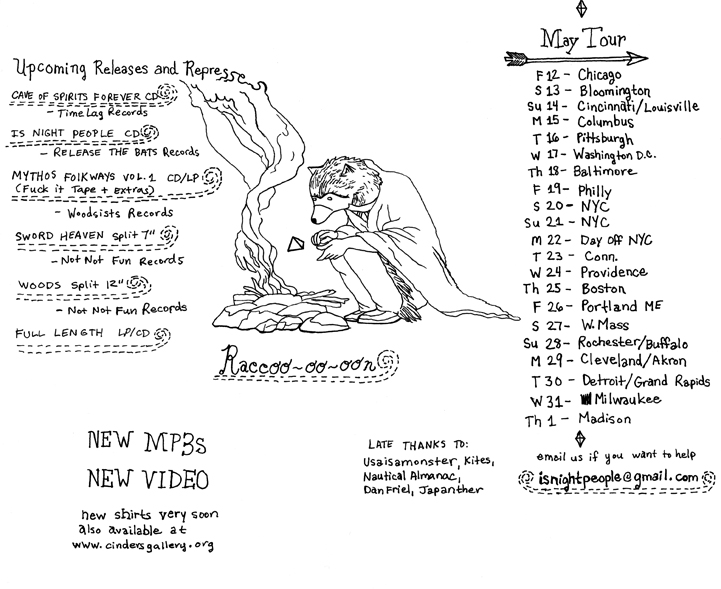 Upcoming Releases and Represses
CAVE OF SPIRITS FOREVER CD
- Time Lag Records
IS NIGHT PEOPLE CD
- RELEASE THE BATS Records
MYTHOS FOLKWAYS VOL. 1 CD/LP
(Fuck it Tape + extras)
- Woodsists Records
SWORD HEAVEN split 7"
- Not Not Fun Records
WOODS split 12"
- Not Not Fun Records
FULL LENGTH LP/CD
Raccoo~oo~oon
NEW MP3s
NEW VIDEO
new shirts very soon
also available at
www.cindersgallery.org
LATE THANKS TO:
Usaisamonster, Kites,
Nautical Almanac,
Dan Friel, Japanther
May Tour
F 12 - Chicago
S 13 - Bloomington
Su 14 - Cincinnati/Louisville
M 15 - Columbus
T 16 - Pittsburgh
W 17 - Washington D.C.
Th 18 - Baltimore
F 19 - Philly
S 20 - NYC
Su 21 - NYC
M 22 - Day off NYC
T 23 - Conn.
W 24 - Providence
Th 25 - Boston
F 26 - Portland ME
S 27 - W. Mass
Su 28 - Rochester/Buffalo
M 29 - Cleveland/Akron
T 30 - Detroit/Grand Rapids
W 31 - Milwaukee
Th 1 - Madison
email us if you want to help
isnightpeople@gmail.com